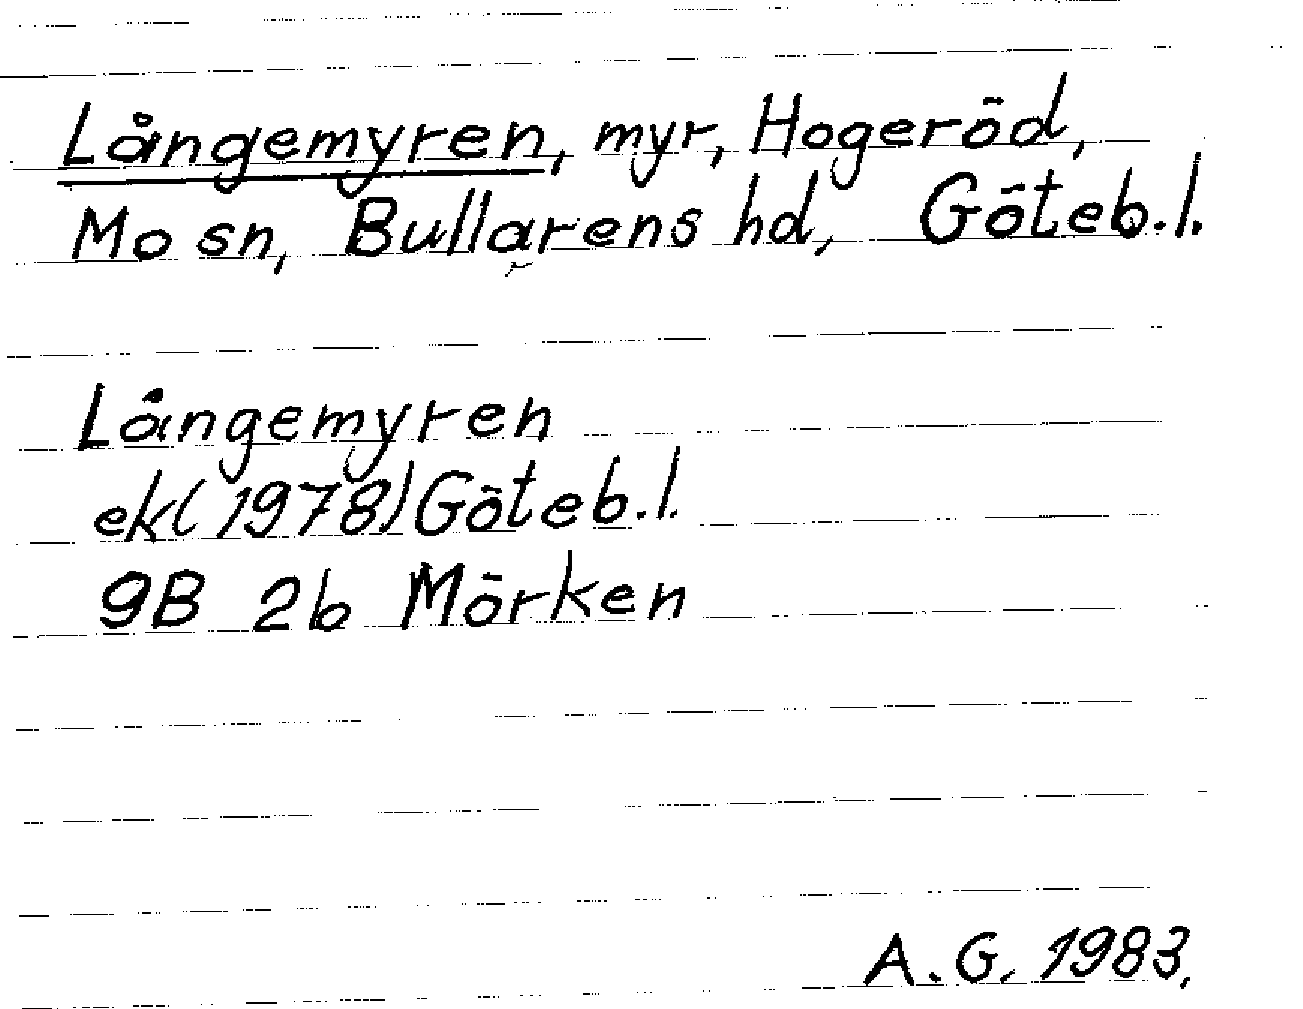 Långemyren, myr, Hogeröd,
Mo sn, Bullarens hd, Göteb.l.
Långemyren
ek(1978)Göteb.l.
9B 2b Mörken
A.G. 1983.